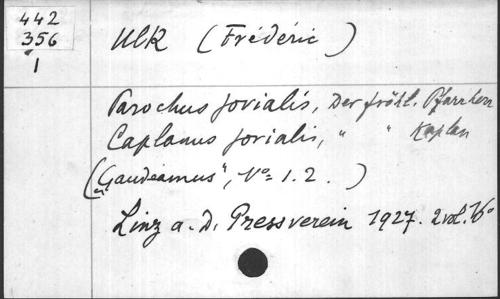 442
356
1
Ulk (Frédéric)
Parochus jovialis, Der fröhl. Pfarrherr
Caplanus jovialis, " " Kaplan
("Gaudeamus", No= 1.2.)
Linz a. D. Pressverein 1927. 2 vol. 16o